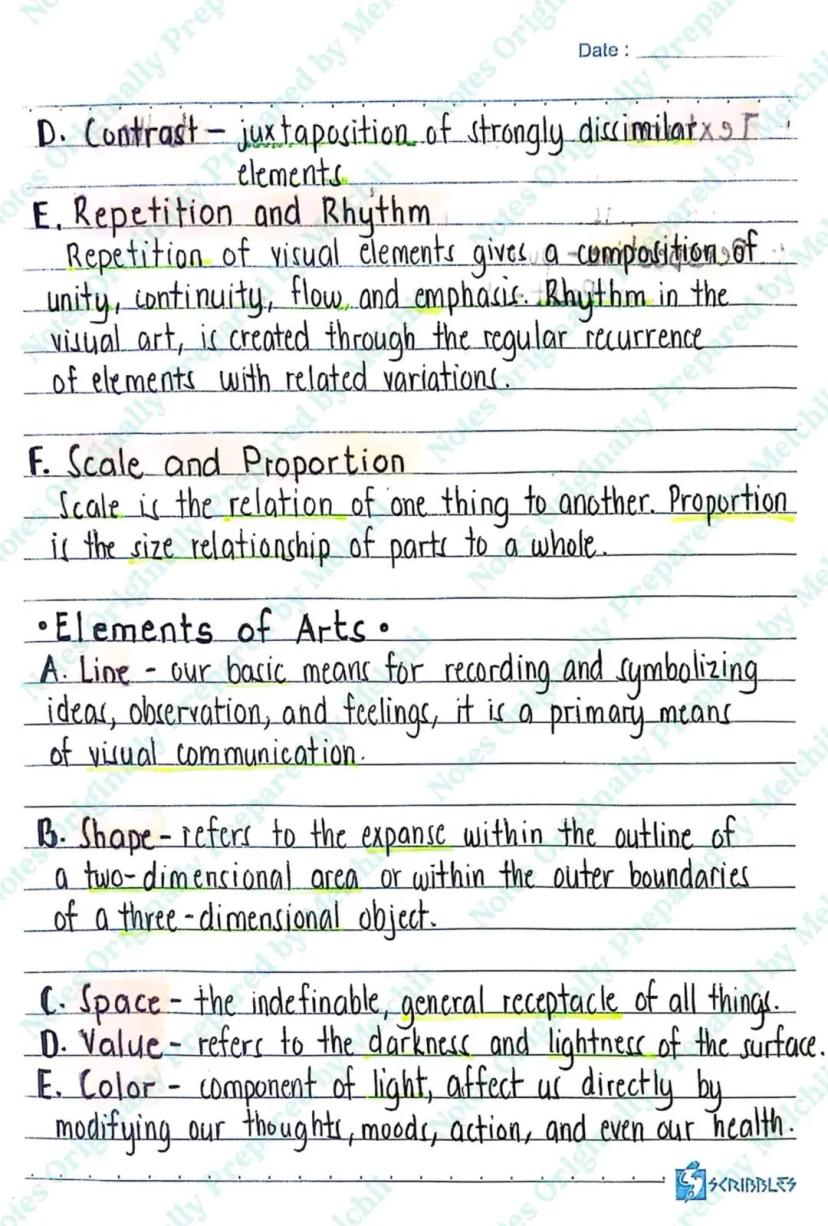 Date :
D. Contrast – juxtaposition of strongly dissimilar
elements
E. Repetition and Rhythm
Repetition of visual elements gives a composition of
unity, continuity, flow, and emphasis. Rhythm in the
visual art, is created through the regular recurrence
of elements with related variations.
F. Scale and Proportion
Scale is the relation of one thing to another. Proportion
is the size relationship of parts to a whole.
• Elements of Arts •
A. Line - our basic means for recording and symbolizing
ideas, observation, and feelings, it is a primary means
of visual communication.
B. Shape - refers to the expanse within the outline of
a two-dimensional area or within the outer boundaries
of a three-dimensional object.
C. Space - the indefinable, general receptacle of all things.
D. Value - refers to the darkness and lightness of the surface.
E. Color - component of light, affect us directly by
modifying our thoughts, moods, action, and even our health.
SCRIBBLES
Notes Originally Prepared by Melchii